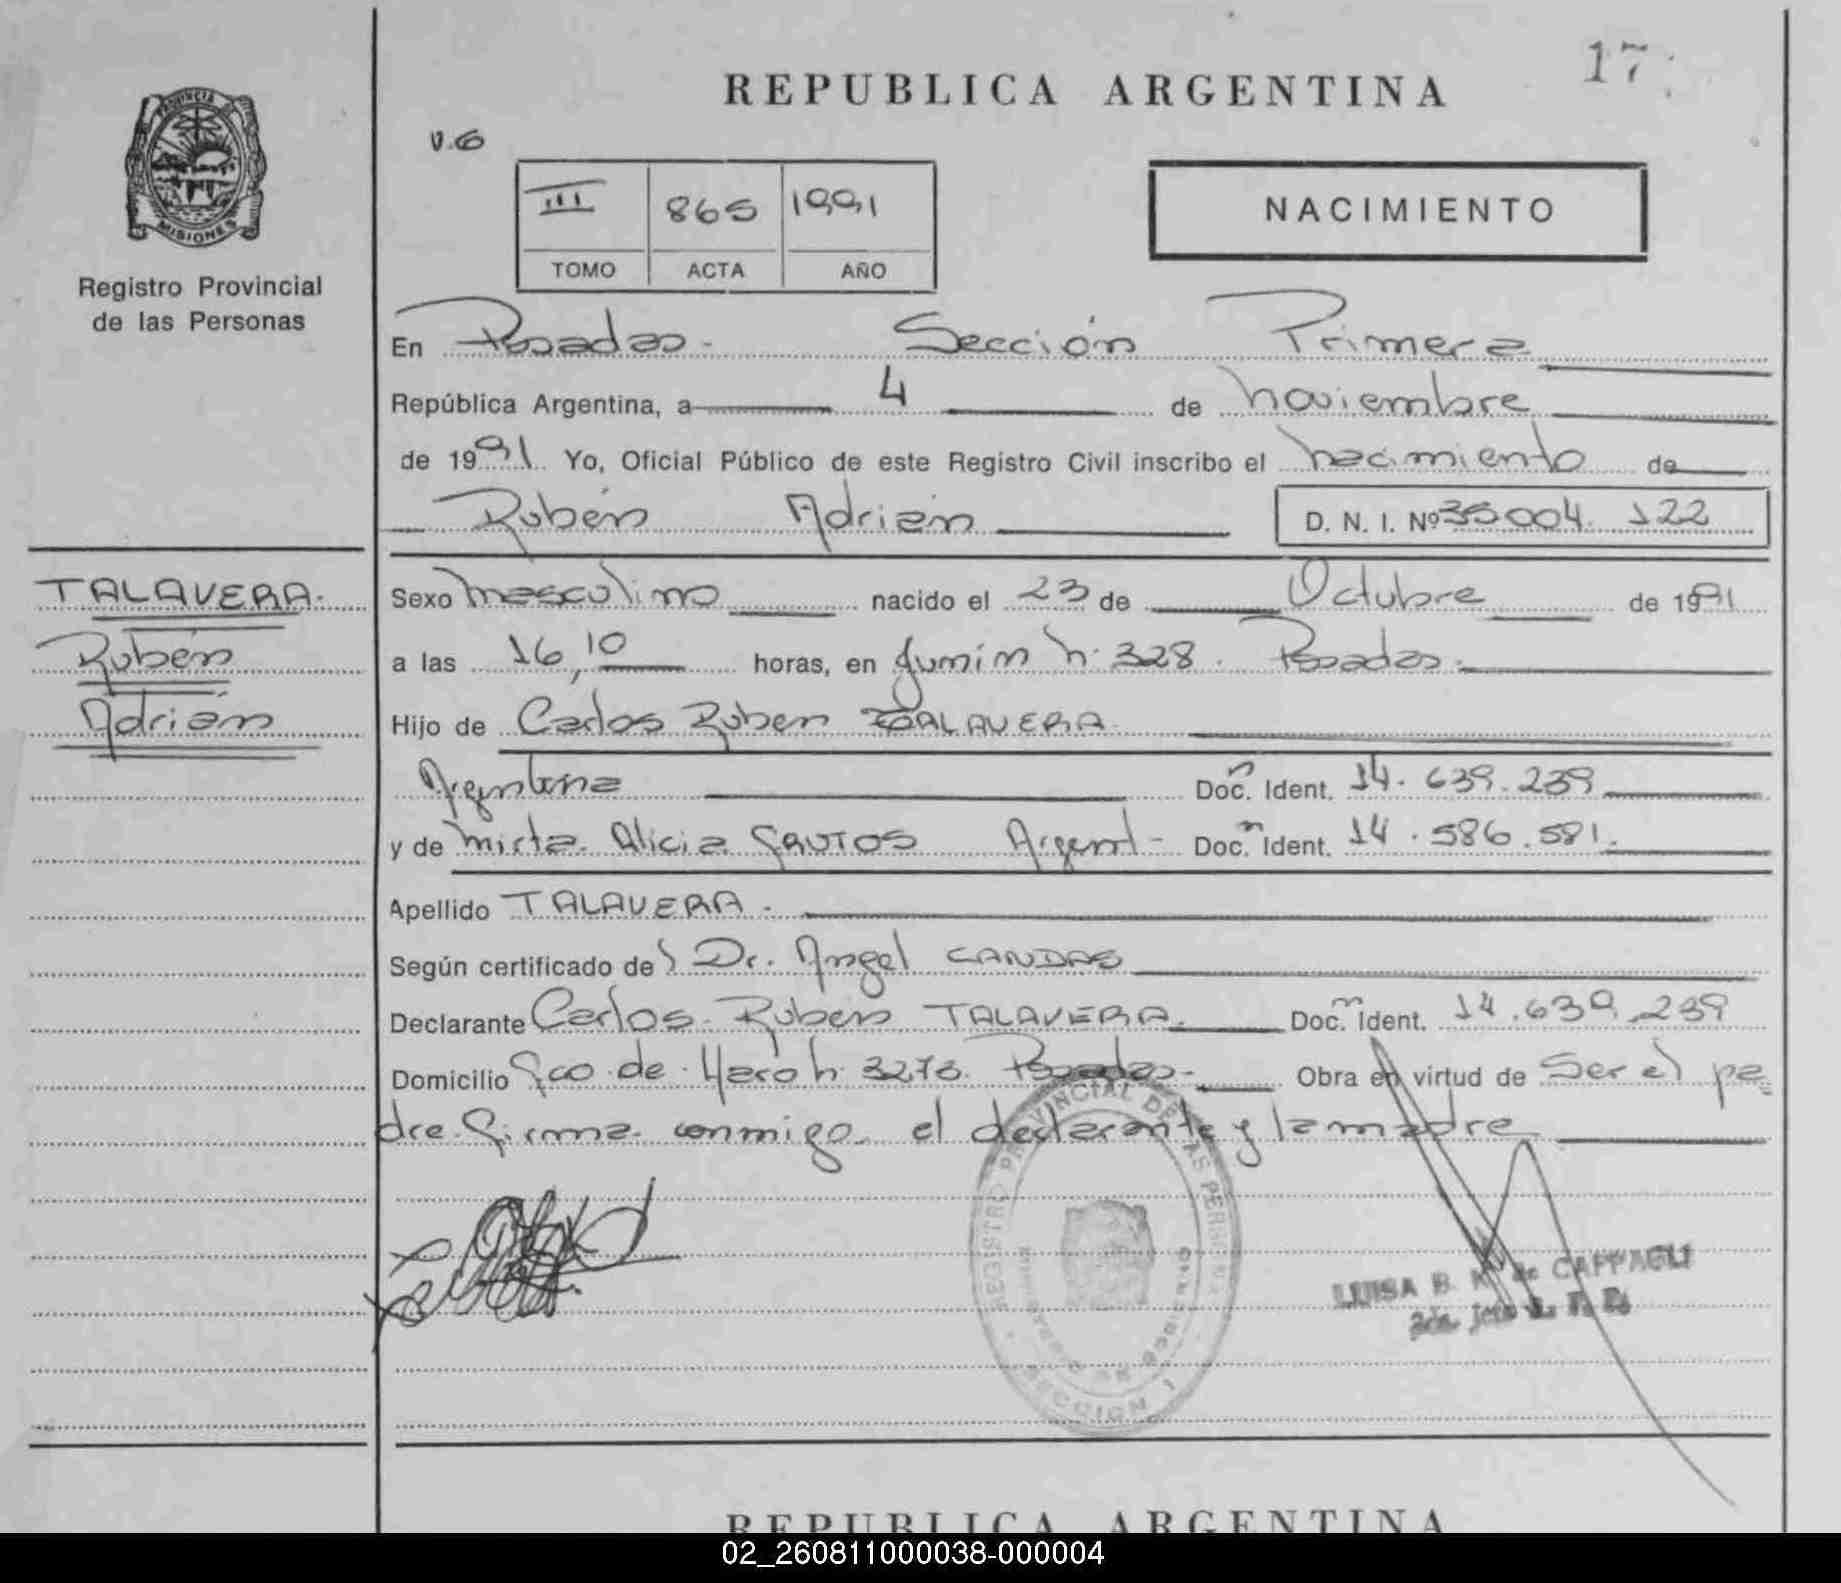 17
REPUBLICA ARGENTINA
V.G
PROVINCIA DE
MISIONES
Registro Provincial
de las Personas
III 865 1991
TOMO ACTA AÑO
NACIMIENTO
En Posadas.- Sección Primera
República Argentina, a 4 de noviembre
de 1991 Yo, Oficial Público de este Registro Civil inscribo el nacimiento de
Rubén Adrián D. N. I. Nº 35.004.122
TALAVERA.
Rubén
Adrián
Sexo masculino nacido el 23 de Octubre de 1991
a las 16,10 horas, en Junín n: 328. Posadas.-
Hijo de Carlos Ruben TALAVERA
Argentina Doc. Ident. 14.639.239
y de Mirta Alicia Argent- Doc. Ident. 14.586.581.
Apellido TALAVERA.
Según certificado de Dr. Angel CANDAS
Declarante Carlos Rubén TALAVERA. Doc. Ident. 14.639.239
Domicilio Fco de Haro n: 3276. Posadas.- Obra en virtud de Ser el pa=
dre. Firma conmigo el declarante y la madre
REGISTRO PROVINCIAL DE LAS PERSONAS
MINISTERIO DE GOBIERNO
SECCION 1
LUISA B. M. de CAPPAGLI
2da. Jefe
REPUBLICA ARGENTINA
02_260811000038-000004